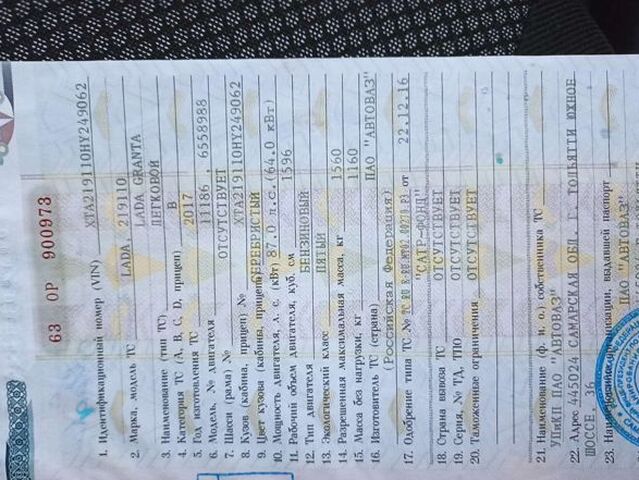 63 ОР 900973
1. Идентификационный номер (VIN) ХТА219110НY249062
2. Марка, модель ТС LADA, 219110
LADA GRANTA
3. Наименование (тип ТС) ЛЕГКОВОЙ
4. Категория ТС (А, В, С, D, прицеп) В
5. Год изготовления ТС 2017
6. Модель, № двигателя 11186, 6558988
7. Шасси (рама) № ОТСУТСТВУЕТ
8. Кузов (кабина, прицеп) № ХТА219110НY249062
9. Цвет кузова (кабины, прицепа) СЕРЕБРИСТЫЙ
10. Мощность двигателя, л. с. (кВт) 87.0 л.с. (64.0 кВт)
11. Рабочий объем двигателя, куб. см 1596
12. Тип двигателя БЕНЗИНОВЫЙ
13. Экологический класс ПЯТЫЙ
14. Разрешенная максимальная масса, кг 1560
15. Масса без нагрузки, кг 1160
16. Изготовитель ТС (страна) ПАО "АВТОВАЗ"
(Российская Федерация)
17. Одобрение типа ТС № от 22.12.16
"САТР-ФОНД"
18. Страна вывоза ТС ОТСУТСТВУЕТ
19. Серия, № ТД, ТПО ОТСУТСТВУЕТ
20. Таможенные ограничения ОТСУТСТВУЕТ
21. Наименование (ф. и. о.) собственника ТС
УПиКП ПАО "АВТОВАЗ"
22. Адрес 445024 САМАРСКАЯ ОБЛ. Г. ТОЛЬЯТТИ ЮЖНОЕ
ШОССЕ, 36
23. Наименование организации, выдавшей паспорт
ПАО "АВТОВАЗ"